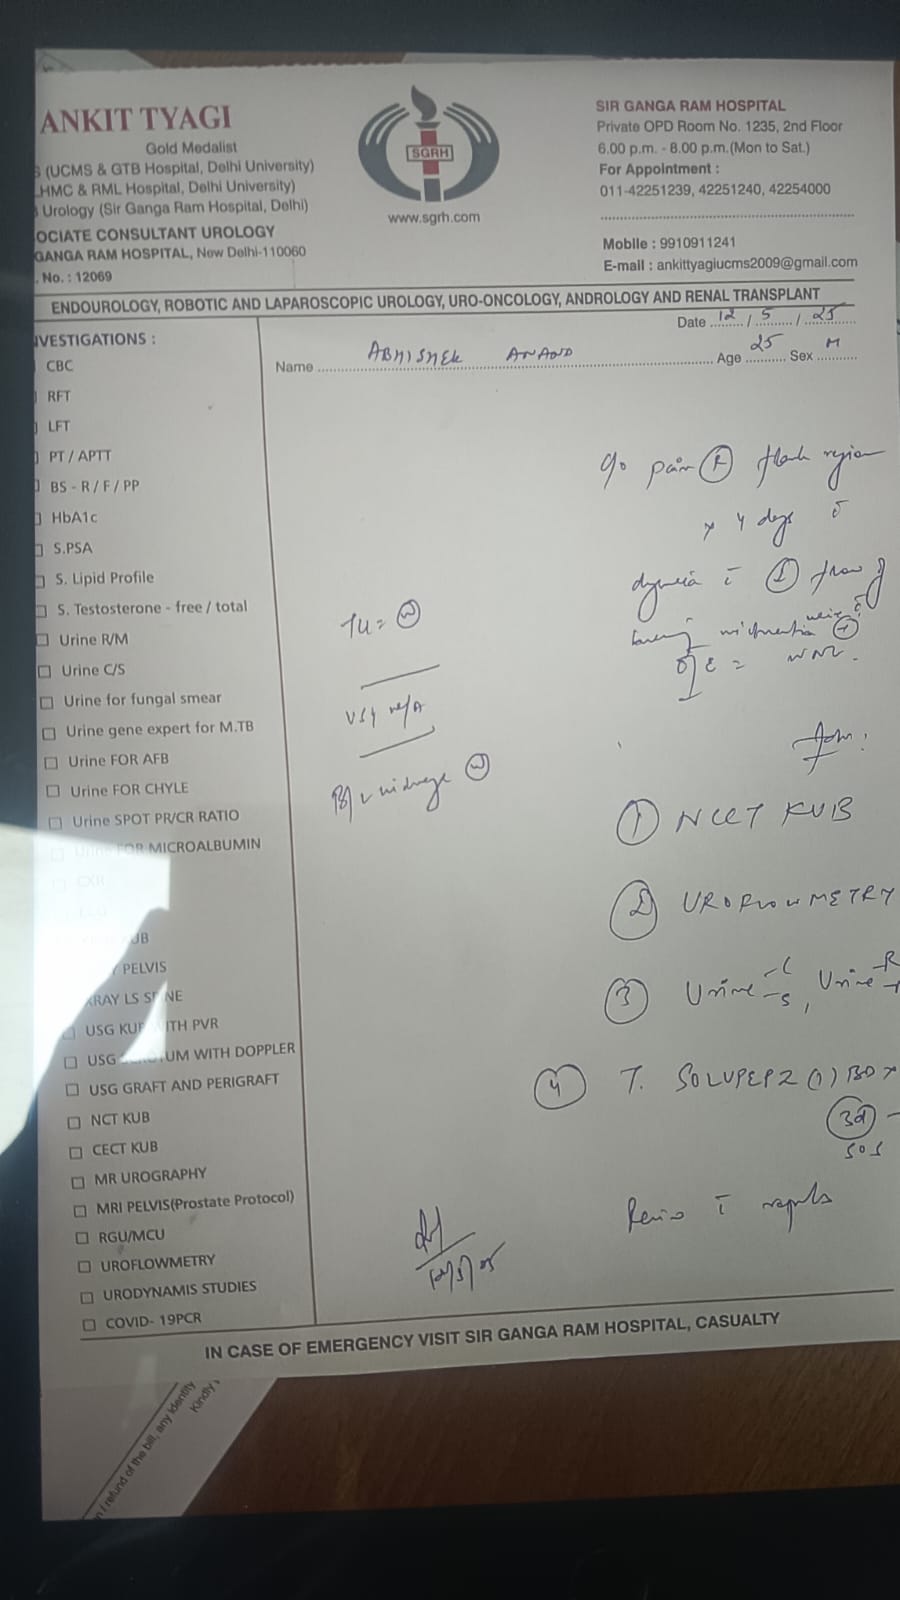 ANKIT TYAGI
Gold Medalist
S (UCMS & GTB Hospital, Delhi University)
LHMC & RML Hospital, Delhi University)
Urology (Sir Ganga Ram Hospital, Delhi)
OCIATE CONSULTANT UROLOGY
GANGA RAM HOSPITAL, New Delhi-110060
. No. : 12069
SGRH
www.sgrh.com
SIR GANGA RAM HOSPITAL
Private OPD Room No. 1235, 2nd Floor
6.00 p.m. - 8.00 p.m.(Mon to Sat.)
For Appointment :
011-42251239, 42251240, 42254000
Mobile : 9910911241
E-mail : ankittyagiucms2009@gmail.com
ENDOUROLOGY, ROBOTIC AND LAPAROSCOPIC UROLOGY, URO-ONCOLOGY, ANDROLOGY AND RENAL TRANSPLANT
Date 12 / 5 / 25
Name ABHISHEK ANAND Age 25 Sex M
NVESTIGATIONS :
CBC
RFT
LFT
PT / APTT
BS - R / F / PP
HbA1c
S.PSA
S. Lipid Profile
S. Testosterone - free / total
Urine R/M
Urine C/S
Urine for fungal smear
Urine gene expert for M.TB
Urine FOR AFB
Urine FOR CHYLE
Urine SPOT PR/CR RATIO
FOR MICROALBUMIN
CXR
UB
PELVIS
XRAY LS SPINE
USG KUB WITH PVR
USG SCROTUM WITH DOPPLER
USG GRAFT AND PERIGRAFT
NCT KUB
CECT KUB
MR UROGRAPHY
MRI PELVIS(Prostate Protocol)
RGU/MCU
UROFLOWMETRY
URODYNAMIS STUDIES
COVID- 19PCR
c/o pain flank region
x 4 days
O/E = WNL.
① NCCT KUB
② UROFLOWMETRY
③ Urine C/S, Urine R
④ T. SOLUPEPZ (1) BD x
3d
SOS
Review reports
12/5/25
IN CASE OF EMERGENCY VISIT SIR GANGA RAM HOSPITAL, CASUALTY
refund of the bill, any identity
Kindly